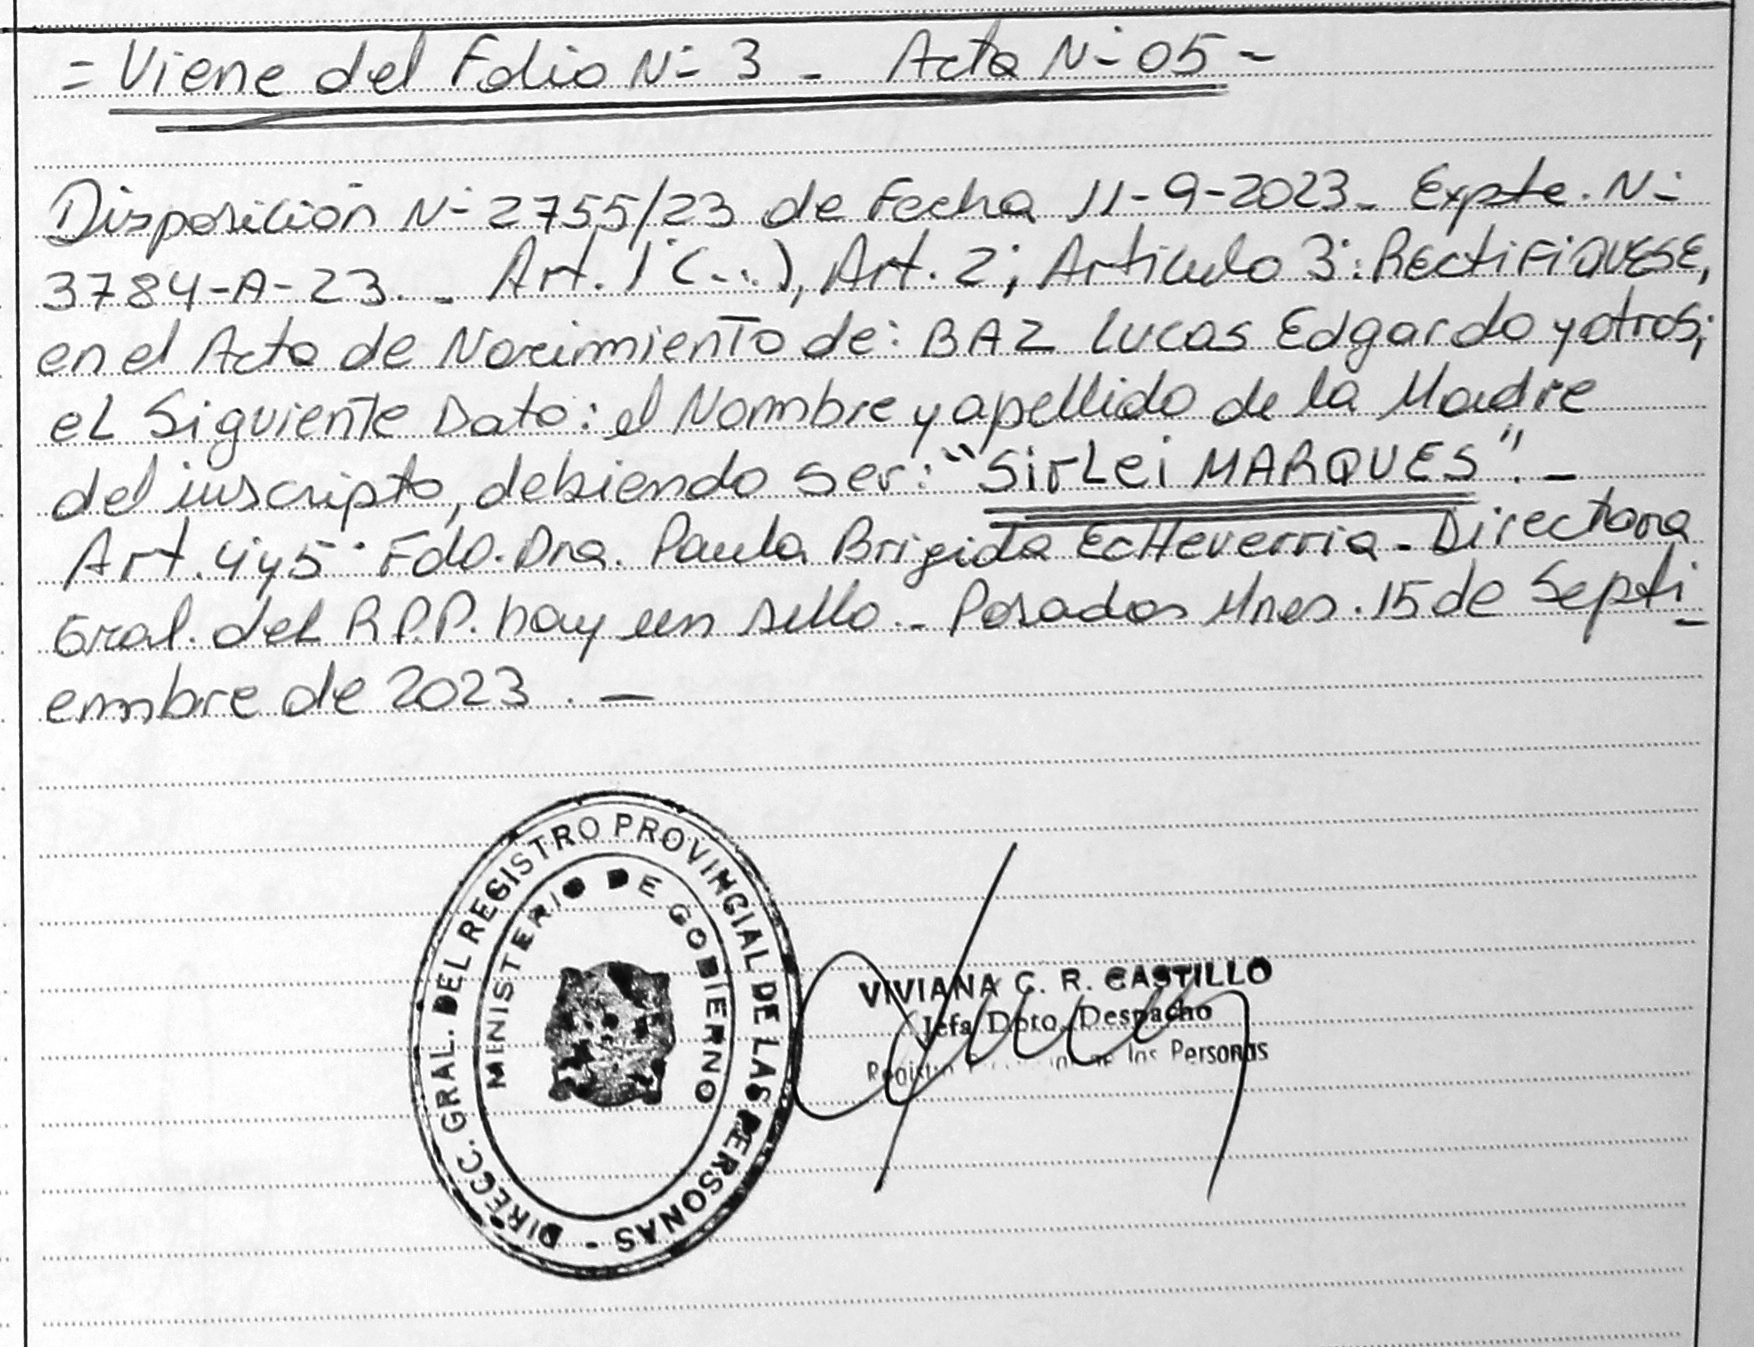 = Viene del Folio Nº 3 - Acta Nº 05 -
Disposición Nº 2755/23 de Fecha 11-9-2023. Expte. Nº
3784-A-23. - Art. 1º (...), Art. 2º; Artículo 3º: RECtiFiQUESE,
en el Acta de Nacimiento de: BAZ Lucas Edgardo y otros;
el Siguiente Dato: el Nombre y apellido de la Madre
del inscripto, debiendo ser: "SirLei MARQUES". -
Art. 4 y 5º Fdo. Dra. Paula Brigida EcHeverria - Directora
Gral. del R.P.P. hay un sello. - Posadas Mnes. 15 de Septi
embre de 2023. -
DIRECC. GRAL. DEL REGISTRO PROVINCIAL DE LAS PERSONAS -
MINISTERIO DE GOBIERNO
VIVIANA C. R. CASTILLO
Jefa Dpto. Despacho
de las Personas